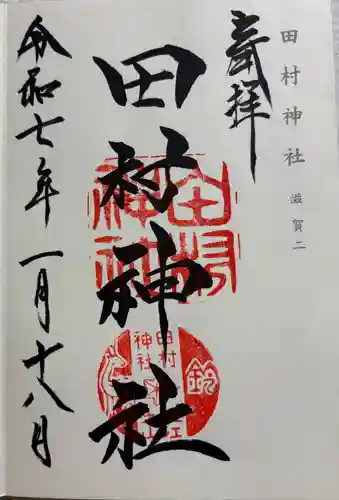 田村神社 滋賀二
奉拝
田村神社
令和七年一月十八月
田村神社